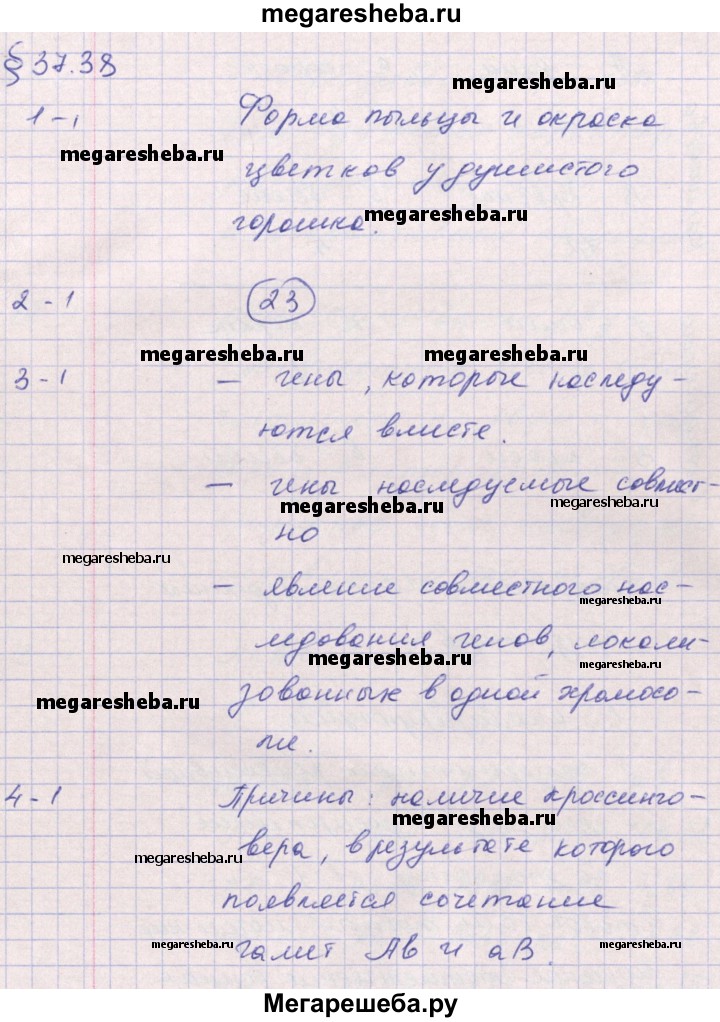 megaresheba.ru
§ 37.38
1-1 Форма пыльцы и окраска
megaresheba.ru
цветков у душистого
megaresheba.ru
горошка.
2-1 23
megaresheba.ru megaresheba.ru
3-1 - гены, которые наследу-
ются вместе.
- гены наследуемые совмест-
megaresheba.ru megaresheba.ru
но
megaresheba.ru
- явление совместного нас-
megaresheba.ru
ледования генов, локали-
megaresheba.ru megaresheba.ru
зованных в одной хромосо-
megaresheba.ru
ме.
4-1 Причины: наличие кроссинго-
megaresheba.ru
вера, в результате которого
megaresheba.ru megaresheba.ru
появляется сочетание
гамет Ab и aB.
megaresheba.ru megaresheba.ru
Мегарешеба.ру